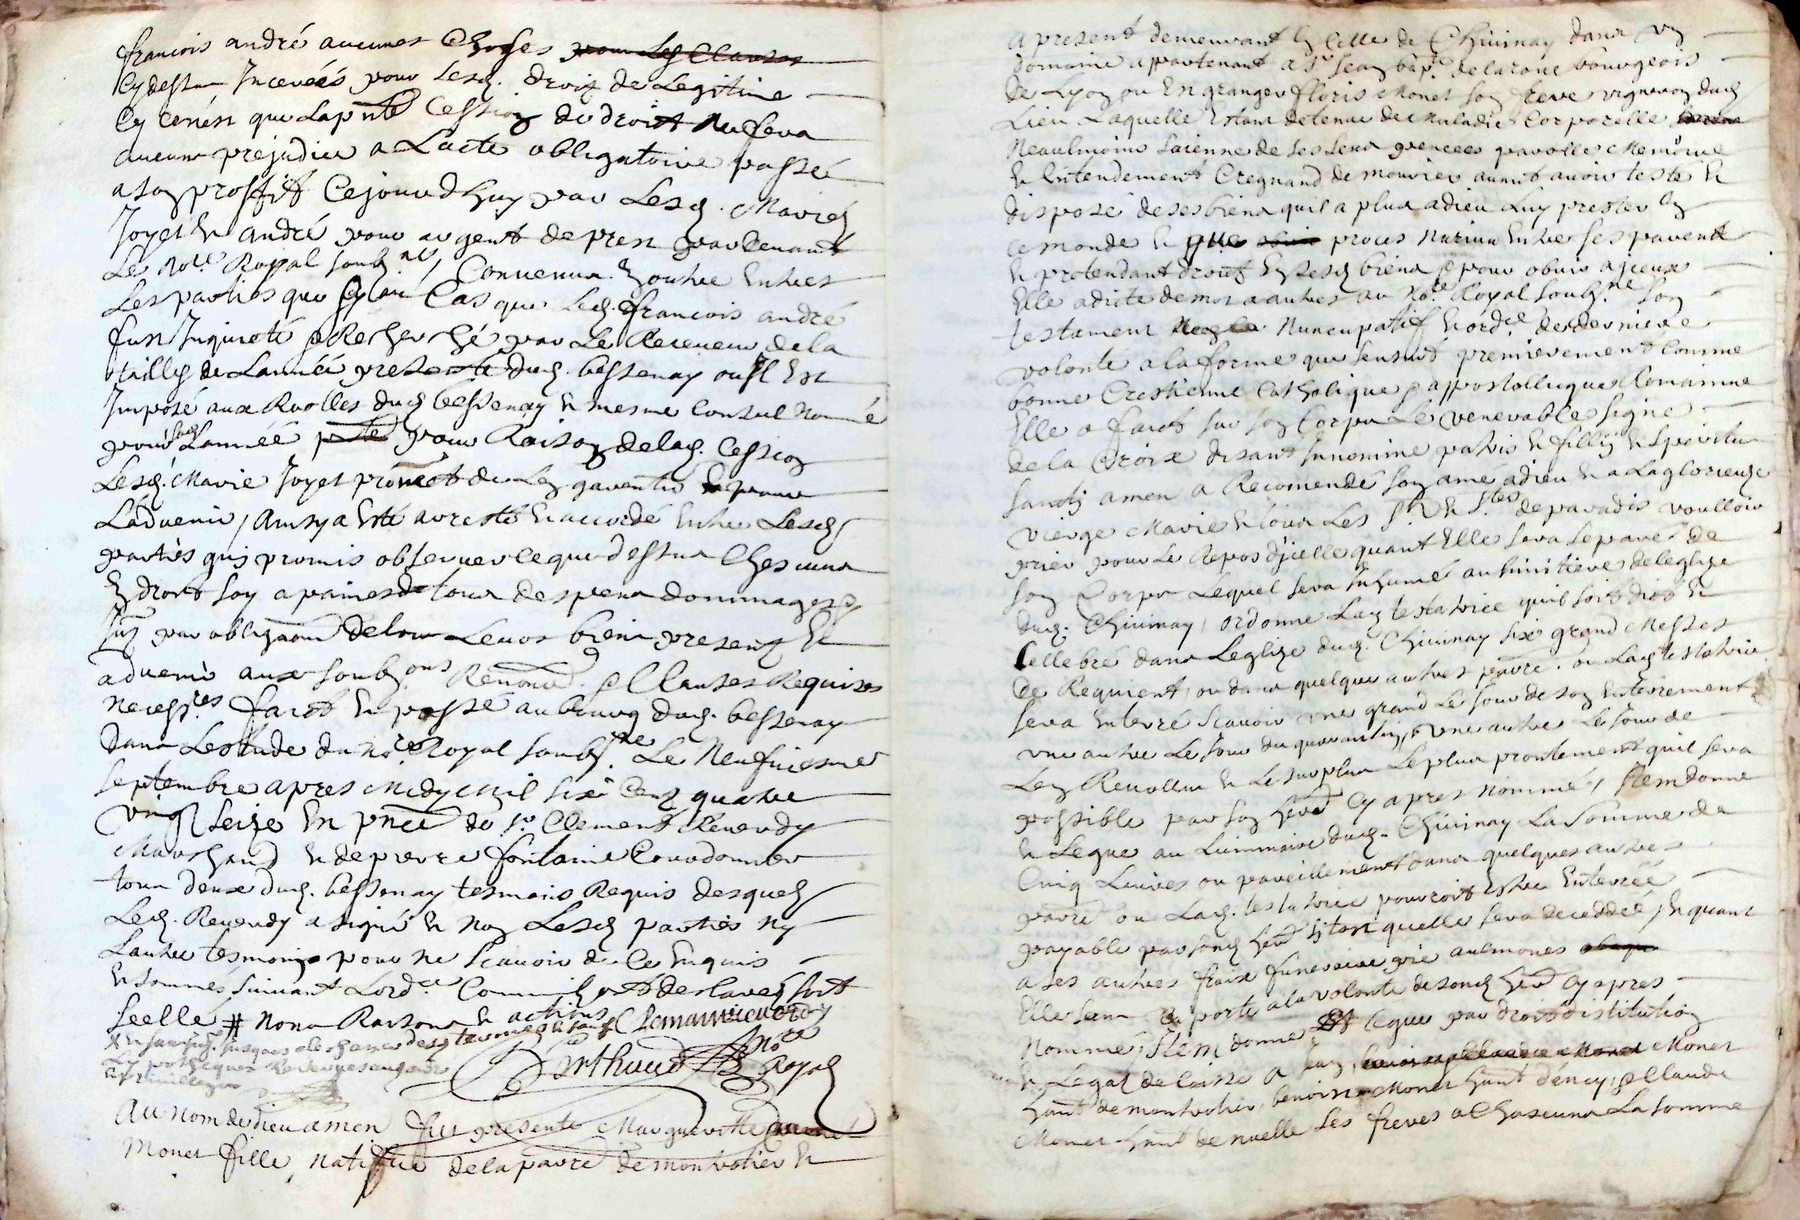 francois andré aucunes choses pour les clauses
cy dessus Incerées pour lesd. droitz de Legitime
cy ce nest que la pnte Cession de droit ne sera
aucune prejudice a Lacte obligatoire passé
a son proffit Cejourdhuy par lesd. Mariés
Joyet et andré pour argent de prest par devant
Le Nore. Royal soubzné, Convenu en outre entre
Les parties que en cas que led. francois andré
fust Inquieté et Recherché par Le Receveur de la
taille de Lannée presente dud. bessenay ou Il est
Imposé aux Roolles dud. bessenay et mesme Consul Nommé
pour lad. Lannée pour Raison de lad. Cession
Lesd. Marie Joyet promet de Len garentir
Ladvenir, ainsy a Esté arresté et accordé entre Lesd.
parties qui promis observer ce que dessus Chescune
En droit soy a paines de tous despens dommages
par obligaon de tous Leurs biens presentz et
advenir aux soubzons Renond. et Clauses Requises
necessres faict et passé au bourg dud. bessenay
dans Lestude du Nore. Royal soubzné. Le Neufviesme
septembre apres Midy Mil six Centz quatre
vingt seize En pnce de sr Clement Reverdy
Marchand et de pierre fontaine Courdonnier
tous deux dud. bessenay tesmoins Requis desquelz
Led. Reverdy a signé et non Lesd. parties ny
Lautre tesmoing pour ne scavoir de Ce Enquis
et sommés suivant Lordce. Comme Il ont declarés soit
seellé # noms Raisons et actions C Reverdy
Nore
Royal
Au Nom de dieu amen fut presente Margueritte
Monet fille, natifve de la parre de montrotier et
a present demeurant En Celle de Chivinay dans un
domaine apartenant a sr Jean bapt. de la roue bourgeois
de Lyon ou Est granger floris Monet son frere vigneron dud.
Lieu Laquelle Estant detenue de Maladie Corporelle
Neaulmoins saienne de ses sens pencées parolles Memoire
et Entendement Cregnand de mourir avant avoir testé et
disposé de ses biens quil a plus a dieu Luy prester En
ce monde et que proces Naisse Entre ses parents
et pretendant droitz En sesd. biens et pour obvier a Iceux
Elle a dicté de mot a autres au Nore. Royal soubzné son
testament Nuncupatif et ordce. de derniere
volonté a la forme que sensuit premierement comme
bonne Crestienne Catholique et apostollicque Romainne
Elle a faict sur son Corps Le venerable signe
de la Croix disant In nomine patris et fillij et spiritus
sanctj amen a Recomendé son ame a dieu et a La glorieuze
vierge Marie et tous Les sts et stes de paradis voulloir
prier pour Le Repos dicelle quant Elle sera separé de
son Corps Lequel sera Inhumé au simitiere de leglize
dud. Chivinay, ordonne Lad. testatrice quil soit dict et
Cellebré dans Leglize dud. Chivinay six grand Messes
de Requient, ou dans quelque autres parre. ou Lad. testatrice
sera Enterré scavoir une grand Le Jour de son Enterrement
une autre Le Jour du quarantin, et une autre Le Jour de
Len Revollu et Le surplus Le plus prontement quil sera
possible par son herer. cy apres nommé, Item donne
et Legue au Luminaire dud. Chivinay La somme de
Cinq Livres ou pareillement dans quelques autre
parre ou Lad. testatrice pourroit estre Enterrée
payable par sond. herer. sitost quelle sera deceddée, et quant
a ses autres fraix funeraire prie aulmones
Elle sen Raporte a la volonté de sond. herer. cy apres
Nommé, Item donne et legue par droit distitution
et Legat delaisse a Monet
hant. de montrotier, benoist Monet hant. dency, et Claude
Monet hant. de nuelle ses freres a Chascuns La somme